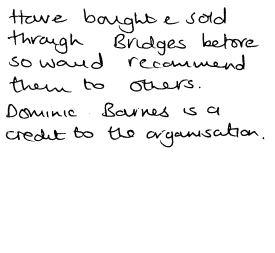 Have bought & sold
through Bridges before
so would recommend
them to others.
Dominic Barnes is a
credit to the organisation.